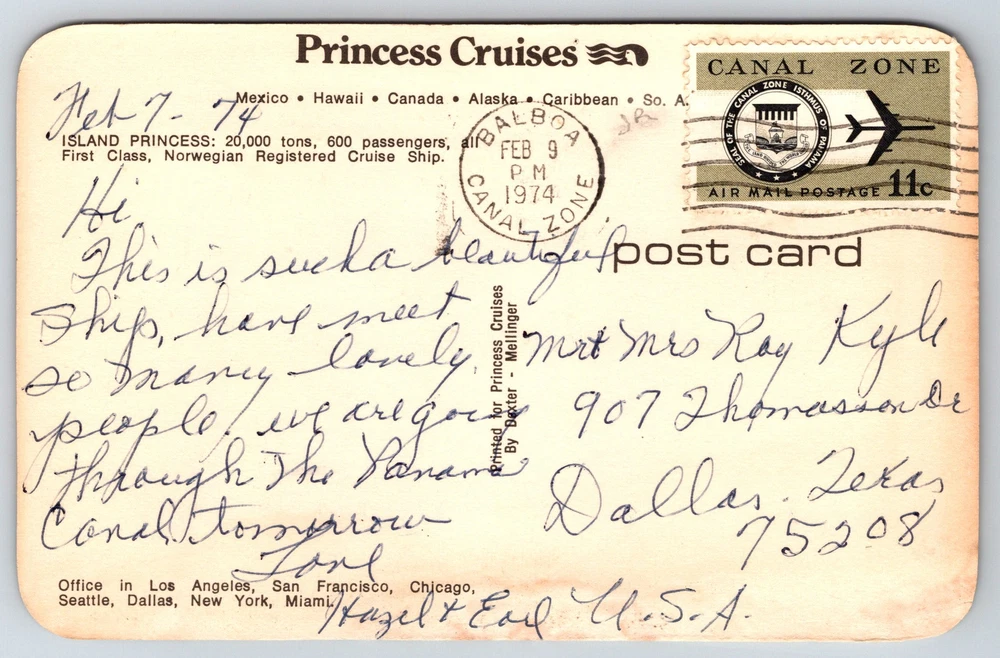 Princess Cruises
Mexico • Hawaii • Canada • Alaska • Caribbean • So. A.
Feb 7 - 74
ISLAND PRINCESS: 20,000 tons, 600 passengers, all
First Class, Norwegian Registered Cruise Ship.
CANAL ZONE
SEAL OF THE CANAL ZONE ISTHMUS OF PANAMA
AIR MAIL POSTAGE 11c
BALBOA
FEB 9
PM
1974
CANAL ZONE
post card
Hi
This is such a beautiful
Ship, have meet
so many lovely
people, we are going
through The Panama
Canal tomorrow
Love
Hazel + Earl
Printed for Princess Cruises
By Dexter - Mellinger
Mr + Mrs Roy Kyle
907 Thomasson Dr
Dallas. Texas
75208
U.S.A.
Office in Los Angeles, San Francisco, Chicago,
Seattle, Dallas, New York, Miami.